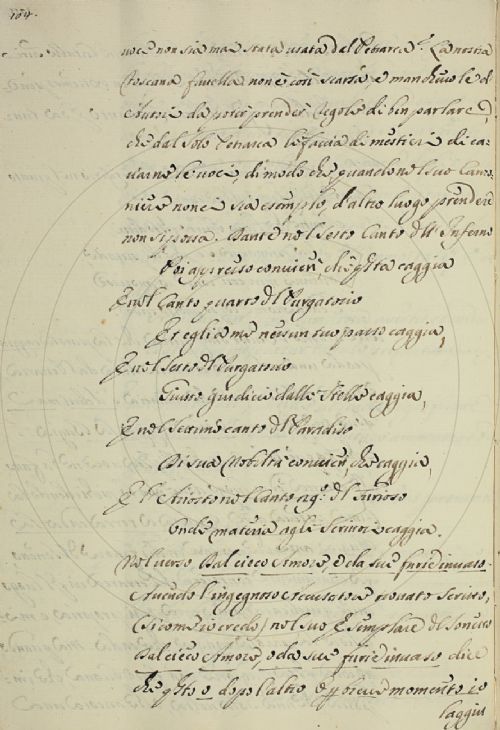 164.
voce non sia mai stata usata dal Petrarca. La nostra
Toscana favella non è così scarsa, e manchevole d
da poter prender regole di ben parlare,
che dal solo Petrarca le faccia di mestieri di ca-
varne le voci, di modo che quando nel suo Canzo-
niere non è sia esempio, d'altro luogo prendere
non si possa. Dante nel sesto Canto dll' Inferno
Poi appresso convien, che qsta caggia
E nel Canto quarto dl Purgatorio
Et egli a me nessun tuo passo caggia,
E nel sesto dl Purgatorio
Giusto giudicio dalle stelle caggia,
E nel settimo canto dl Paradiso
Di sua Nobiltà convien, che caggia,
E l'Ariosto nel Canto dl Furioso
Onde materia agli Scrittori caggia.
Nel verso Dal cieco Amore, e da sue furie invaso.
l'ingegnoso trovato scritto,
(sicom'io credo) nel suo Esemplare dl Sonetto
Dal cieco Amore, e da sue furie invaso dice
che qsto o dopo l'altro è p breve momento io
caggia